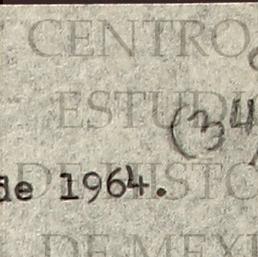 CENTRO
ESTUDI
(34
de 1964.
DE HISTO
DE MEXI